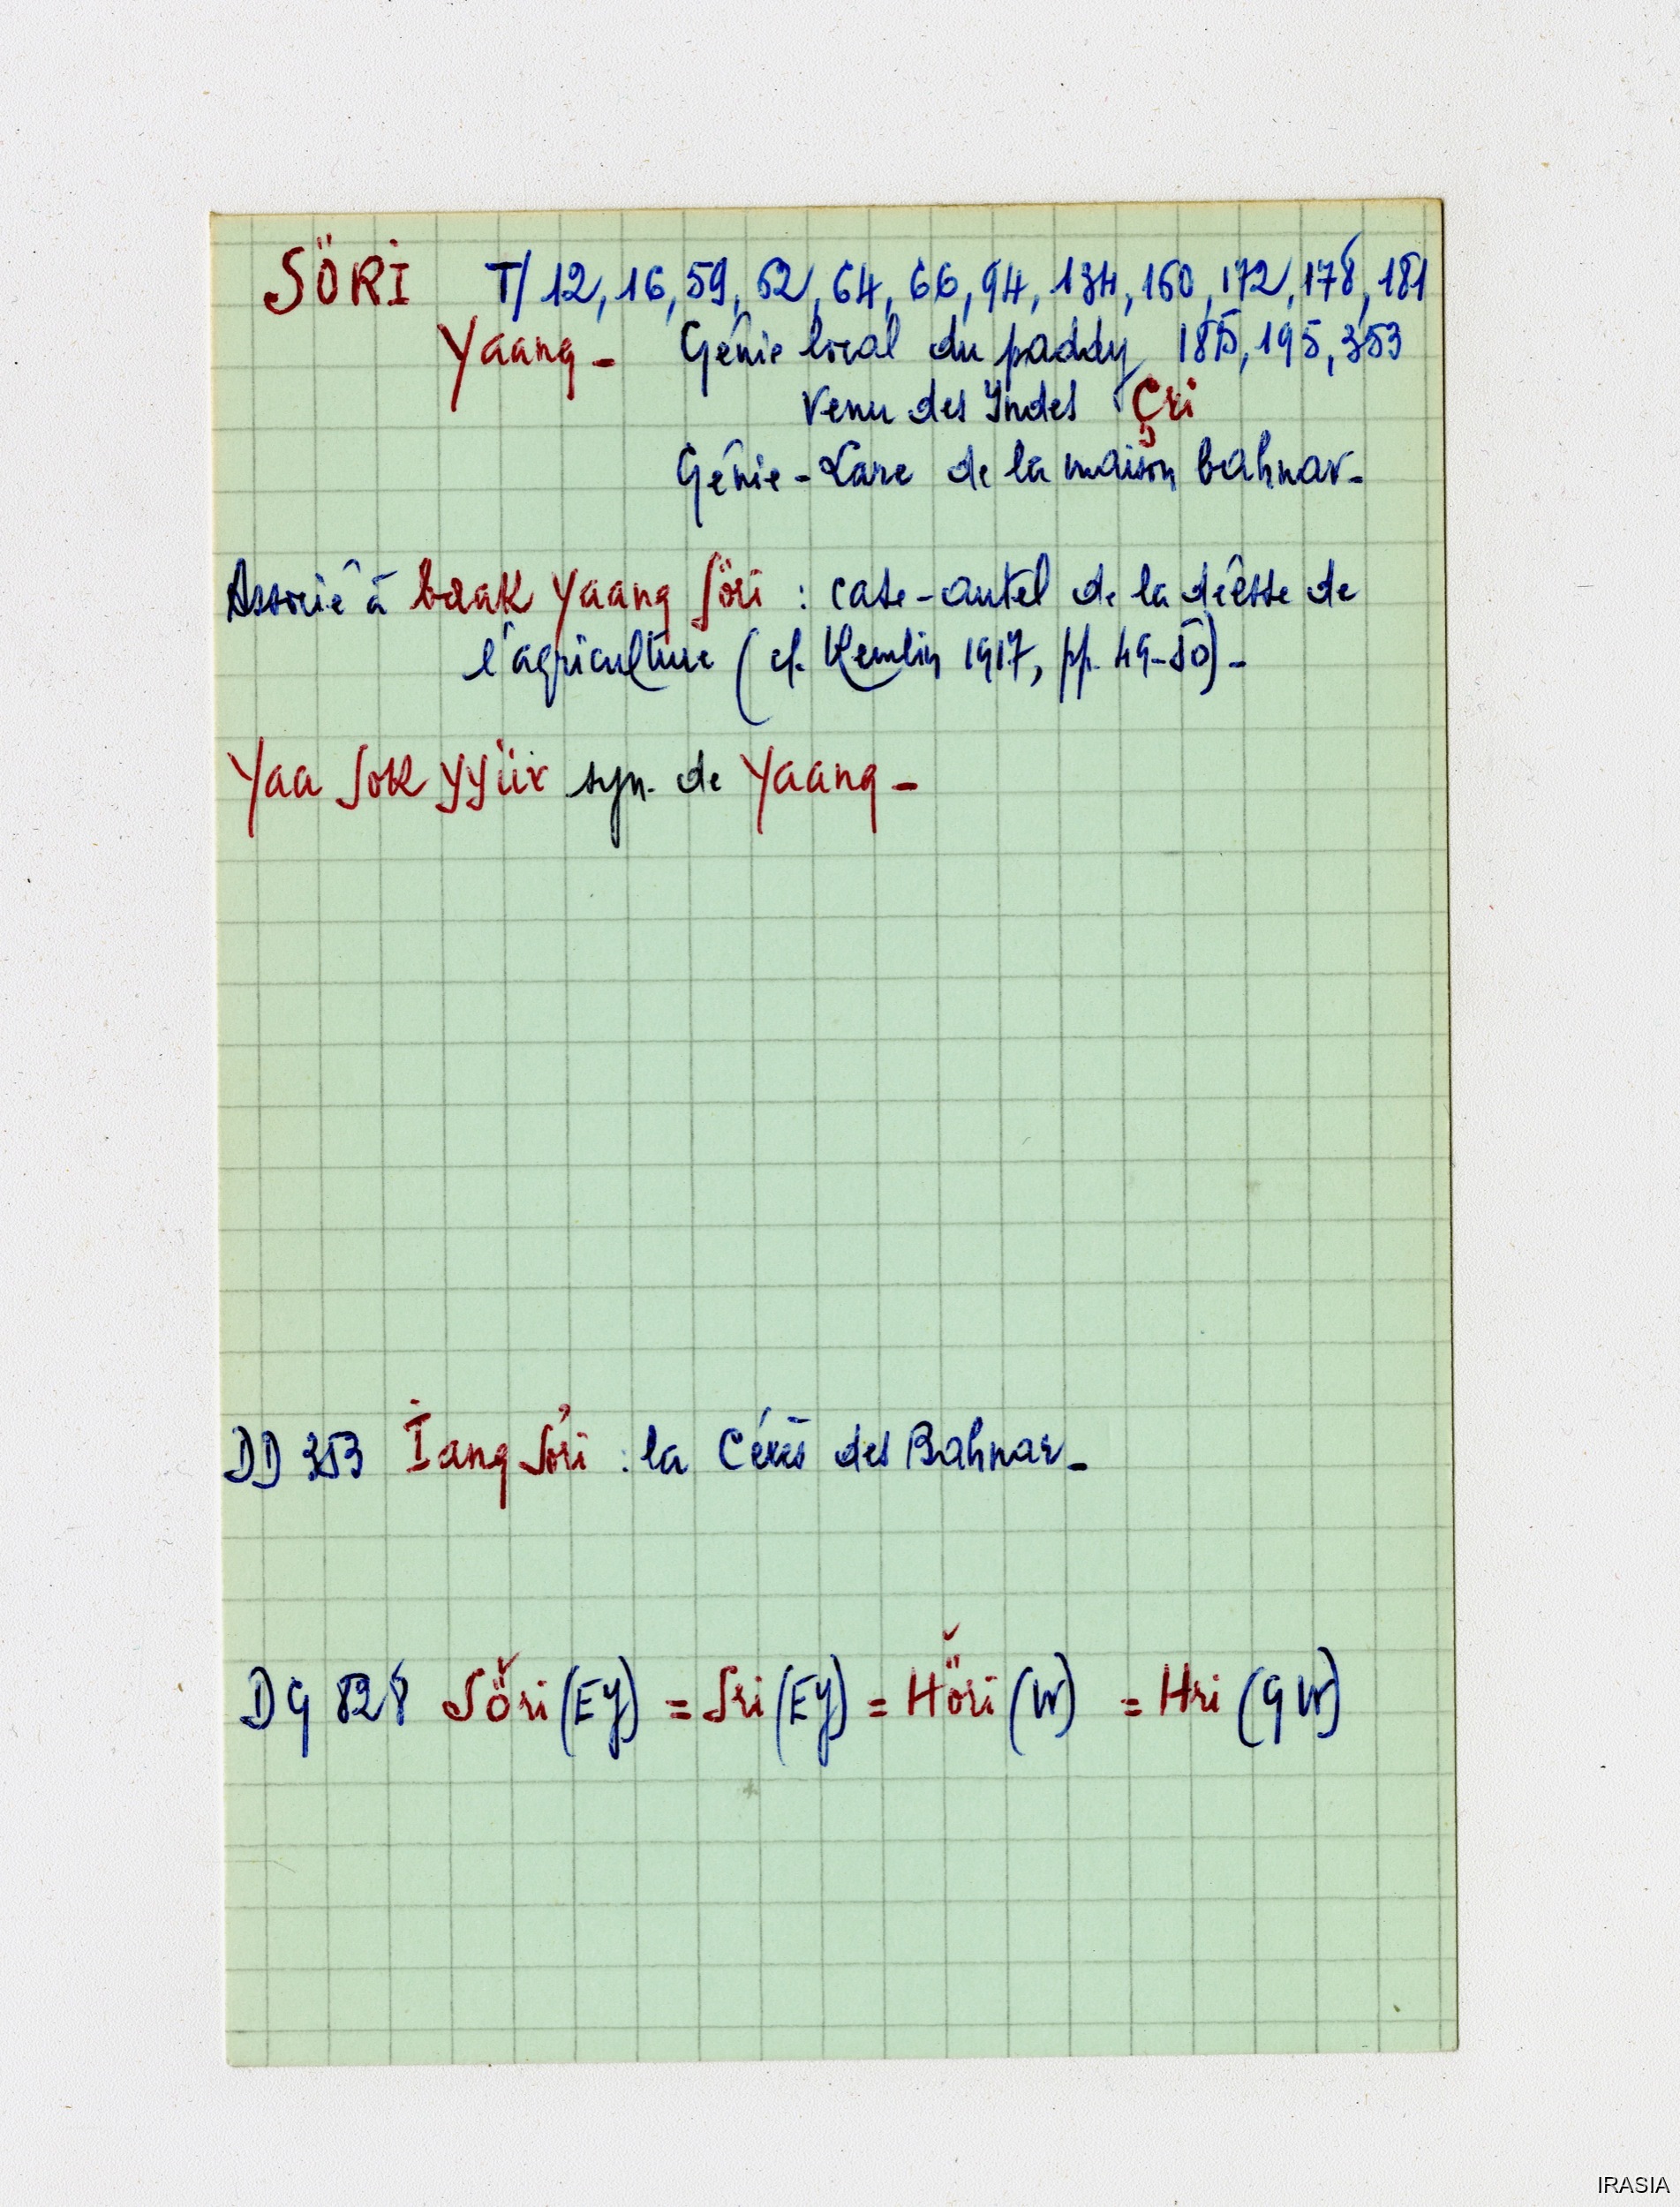 SÖRI T/ 12, 16, 59, 62, 64, 66, 94, 134, 160, 172, 178, 181
Yaang - Génie local du paddy 185, 195, 353
Venu des Indes Çri
Génie-Lare de la maison bahnar -
Associé à Yaang Söri : case-autel de la déesse de
l'agriculture (cf. Kemlin 1917, pp. 49-50) -
Yaa Sok yyüir syn. de Yaang -
DD 353 Iang Sơri : la Cérès des Bahnar -
DG 828 Sö̆ri (EJ) = Sri (EJ) = Hö̆ri (W) = Hri (GW)
IRASIA